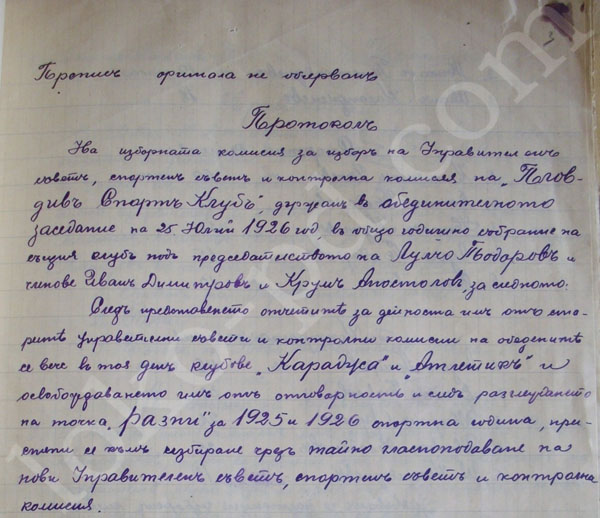 Преписъ оригинала не облерванъ
Протоколъ
На изборната комисия за изборъ на Управителенъ
съветъ, спортенъ съветъ и контролна комисия на „Плов-
дивъ Спортъ Клубъ", държанъ въ обединителното
заседание на 25 Юлий 1926 год. въ общо годишно събрание на
същия клубъ подъ председателството на Лулчо Тодоровъ и
членове Иванъ Димитровъ и Крумъ Апостоловъ, за следното:
Следъ представенето отчетитѣ за дейноста имъ отъ ста-
ритѣ управителни съвети и контролни комисии на обеденитѣ
се вече въ тоя денъ клубове „Караджа" и „Атлетикъ" и
освобождаването имъ отъ отговорность и следъ разглеждането
на точка „разни" за 1925 и 1926 спортна година, при-
стъпи се къмъ избиране чрезъ тайно гласоподаване на
нови Управителенъ съветъ, спортенъ съветъ и контролна
комисия.